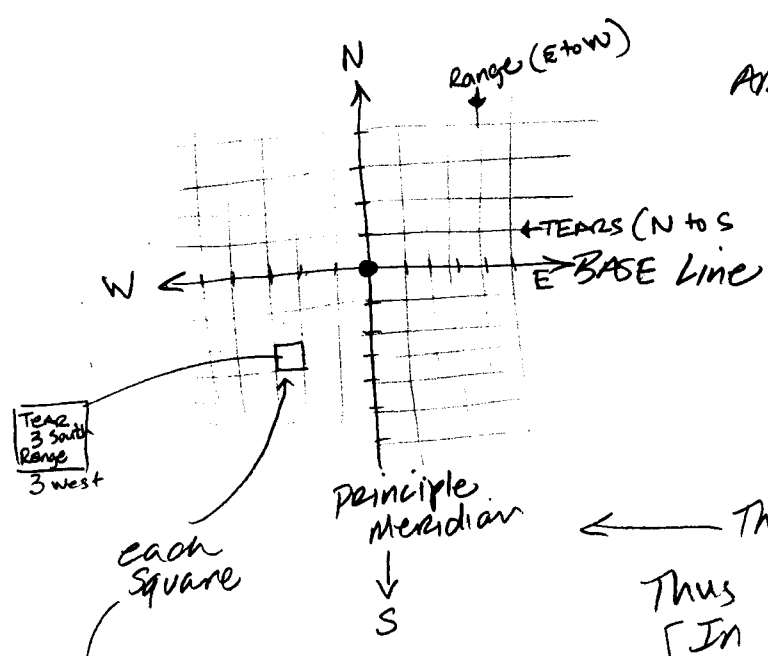 N
Range (E to W)
←TEARS (N to S
W
E
BASE Line
TEAR
3 South
Range
3 West
Principle
Meridian
each
Square
S
Thus
[In